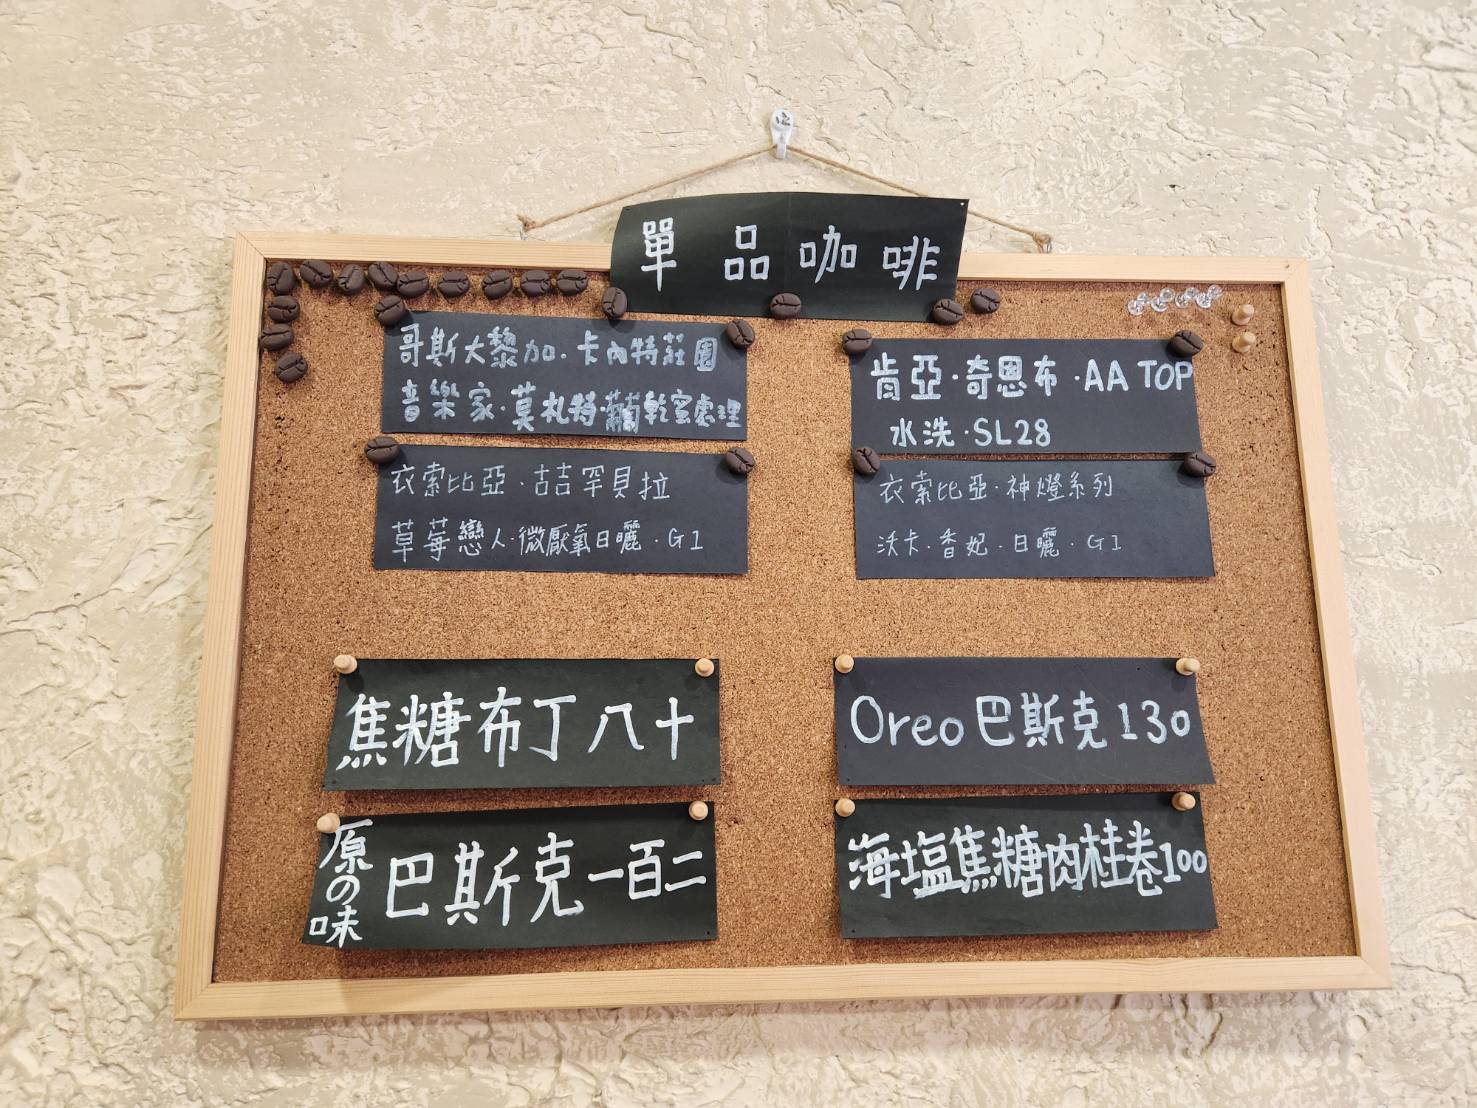 單品咖啡
哥斯大黎加·卡內特莊園
音樂家·莫札特·葡萄乾蜜處理
肯亞·奇恩布·AA TOP
水洗·SL28
衣索比亞·古吉罕貝拉
草莓戀人·微厭氧日曬·G1
衣索比亞·神燈系列
沃卡·香妃·日曬·G1
焦糖布丁八十
Oreo巴斯克130
原の味巴斯克一百二
海塩焦糖肉桂卷100